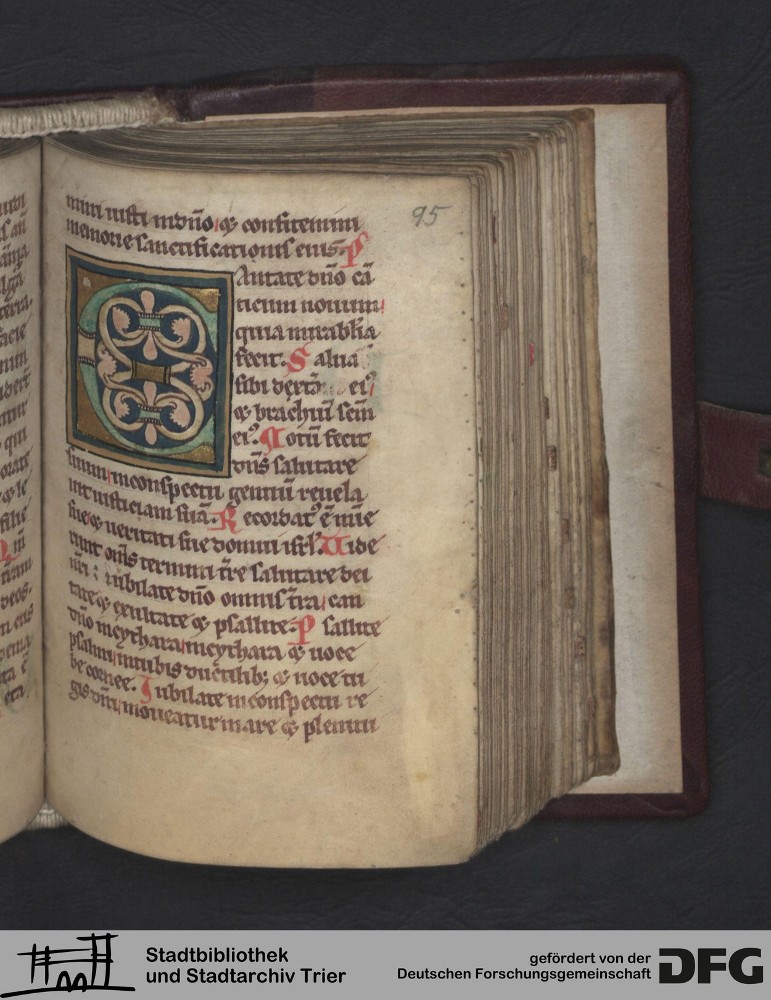 95
mini iusti in dño, ⁊ confitemini
memorie sanctificationis eius. P̃
Cantate dño cã
ticum nouum,
quia mirabilia
fecit. Salua
sibi dextã ei⁹,
⁊ brachiũ scm̃
ei⁹. Notũ fecit
dñs salutare
suum, in conspectu gentiũ reuela
uit iusticiam suã. Recordat⁹ ẽ mie
sue, ⁊ ueritati sue domui isrl̃. Uide
runt om̃s termini tr̃e salutare dei
nr̃i: iubilate dño omnis tr̃a, can
tate ⁊ exultate ⁊ psallite. Psallite
dño in cythara, in cythara ⁊ uoce
psalmi, in tubis ductilib; ⁊ uoce tu
be cornee. Iubilate in conspectu re
gis dñi, moueatur mare ⁊ plenitu
Stadtbibliothek
und Stadtarchiv Trier
gefördert von der
Deutschen Forschungsgemeinschaft
DFG